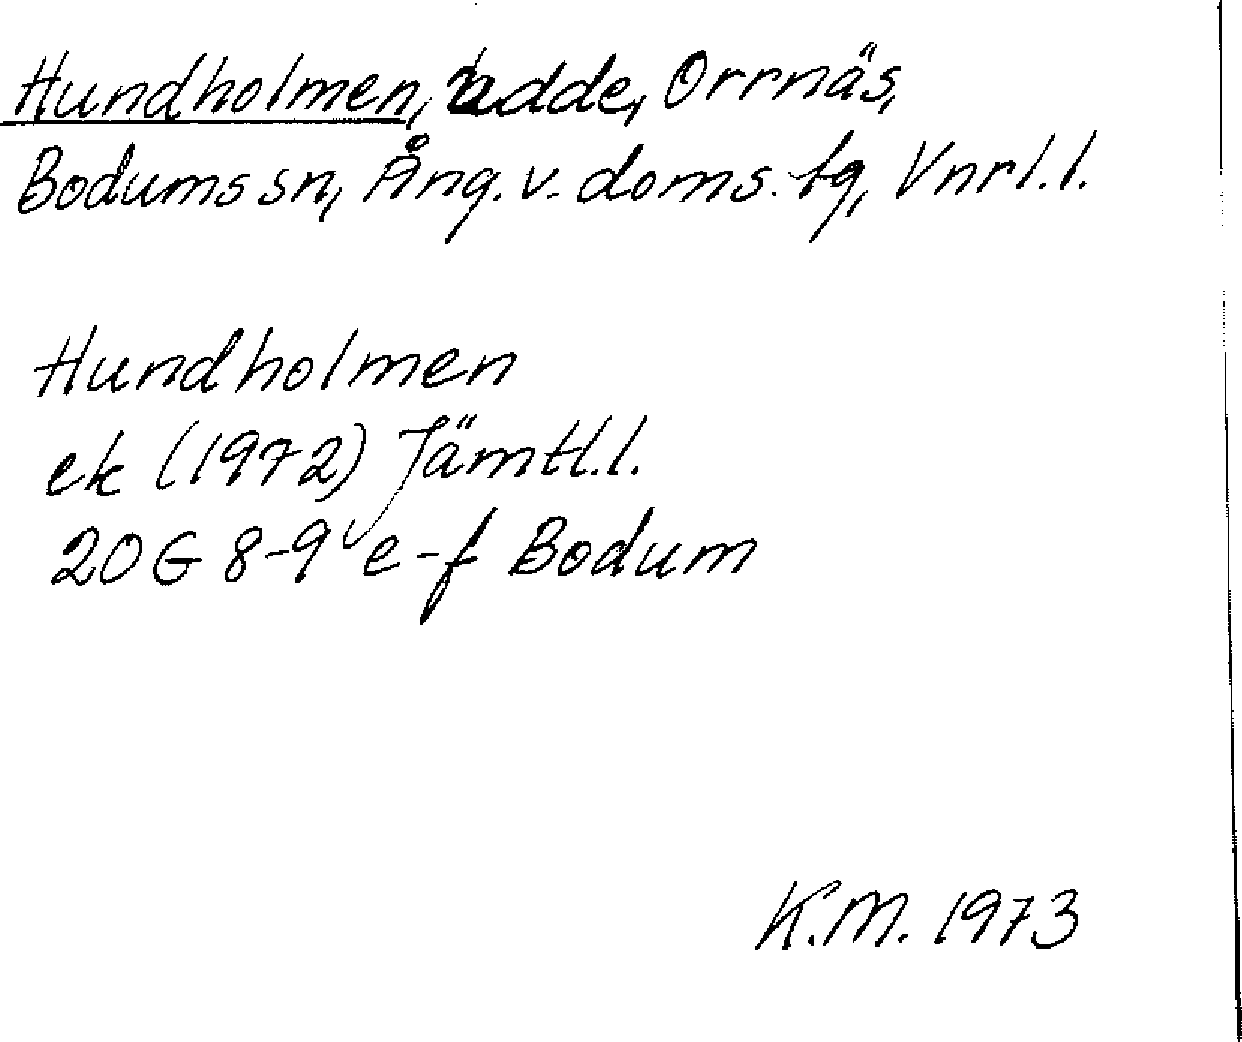 Hundholmen, udde, Orrnäs,
Bodums sn, Ång. v. doms. tg, Vnrl. l.
Hundholmen
ek (1972) Jämtl. l.
20 G 8-9 e-f Bodum
K.M. 1973